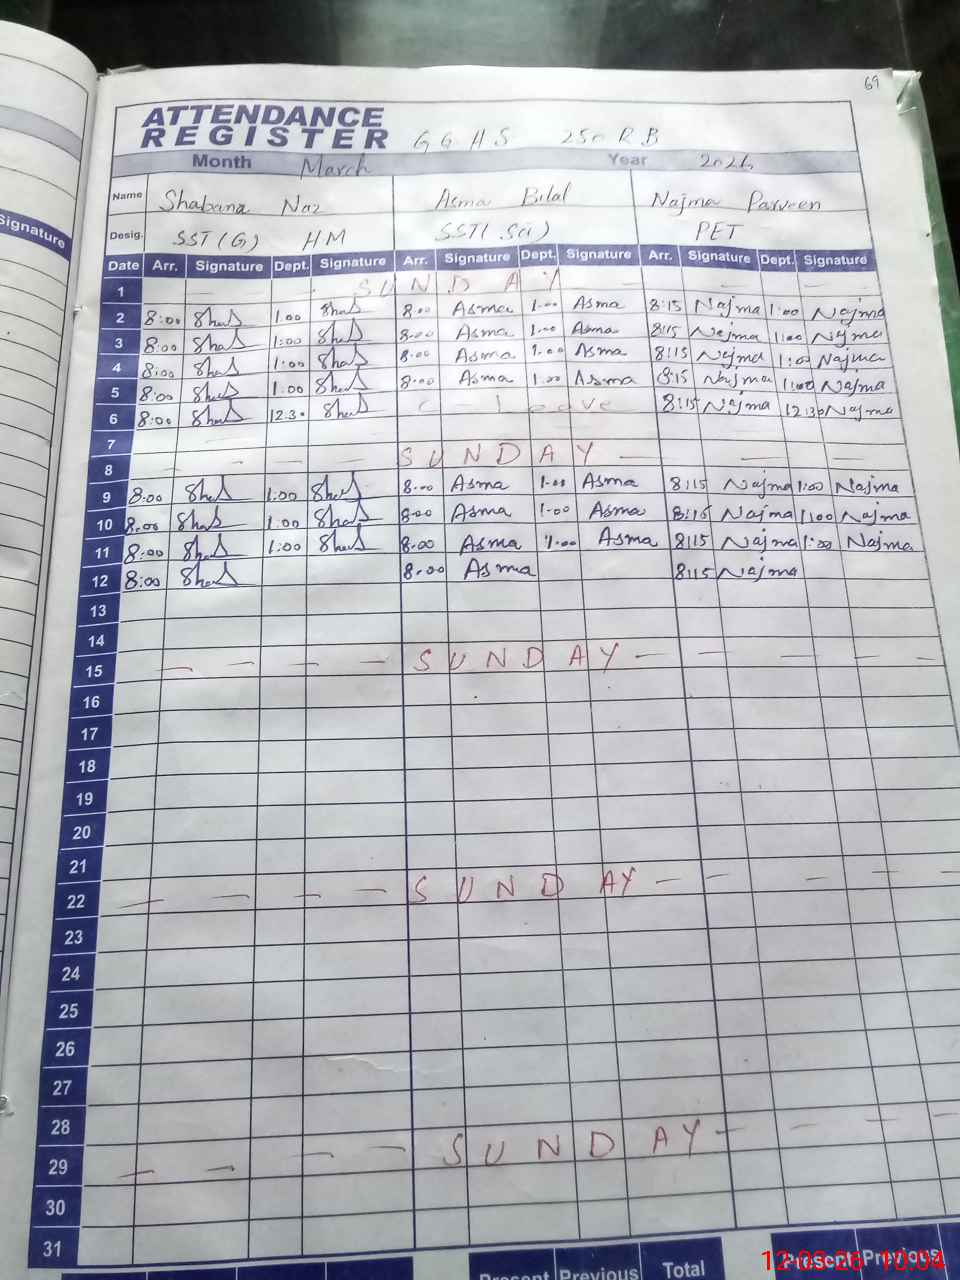 69
ATTENDANCE
REGISTER GGHS 250 RB
Month March Year 2026
Name Shabana Naz Asma Bilal Najma Parveen
Signature
Desig. SST (G) HM SST (Sci) PET
Date Arr. Signature Dept. Signature Arr. Signature Dept. Signature Arr. Signature Dept. Signature
1 SUNDAY
2 8:00 1.00 8.00 Asma 1.00 Asma 8:15 Najma 1:00 Najma
3 8:00 1:00 8.00 Asma 1.00 Asma 8:15 Najma 1:00 Najma
4 8:00 1:00 8.00 Asma 1.00 Asma 8:15 Najma 1:00 Najma
5 8:00 1:00 8:00 Asma 1:00 Asma 8:15 Najma 1:00 Najma
6 8:00 12.30 Leave 8:15 Najma 12:30 Najma
7
8 SUNDAY
9 8:00 1:00 8.00 Asma 1.00 Asma 8:15 Najma 1:00 Najma
10 8:00 1:00 8:00 Asma 1.00 Asma 8:15 Najma 1:00 Najma
11 8:00 1:00 8.00 Asma 1.00 Asma 8:15 Najma 1:00 Najma
12 8:00 8.00 Asma 8:15 Najma
13
14
15 SUNDAY
16
17
18
19
20
21
22 SUNDAY
23
24
25
26
27
28
29 SUNDAY
30
31
Present Previous Total Present Previous
12-03-26 10:04